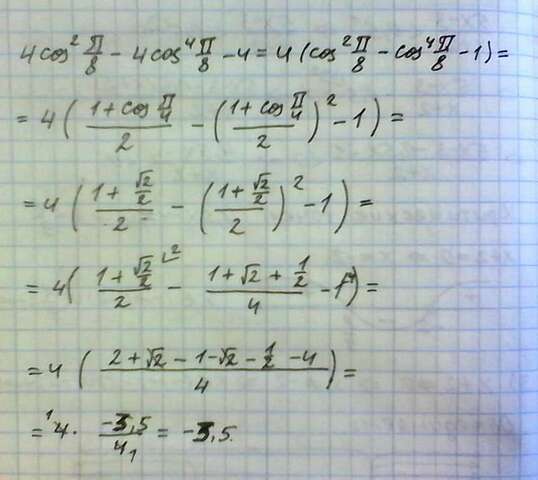 4cos²π/8 - 4cos⁴π/8 - 4 = 4(cos²π/8 - cos⁴π/8 - 1) =
= 4((1+cos π/4)/2 - ((1+cos π/4)/2)² - 1) =
= 4((1+√2/2)/2 - ((1+√2/2)/2)² - 1) =
= 4((1+√2/2)/2 ⌞² - (1+√2+1/2)/4 - 1) =
= 4((2+√2-1-√2-1/2-4)/4) =
= ¹4· -3,5/4₁ = -3,5.